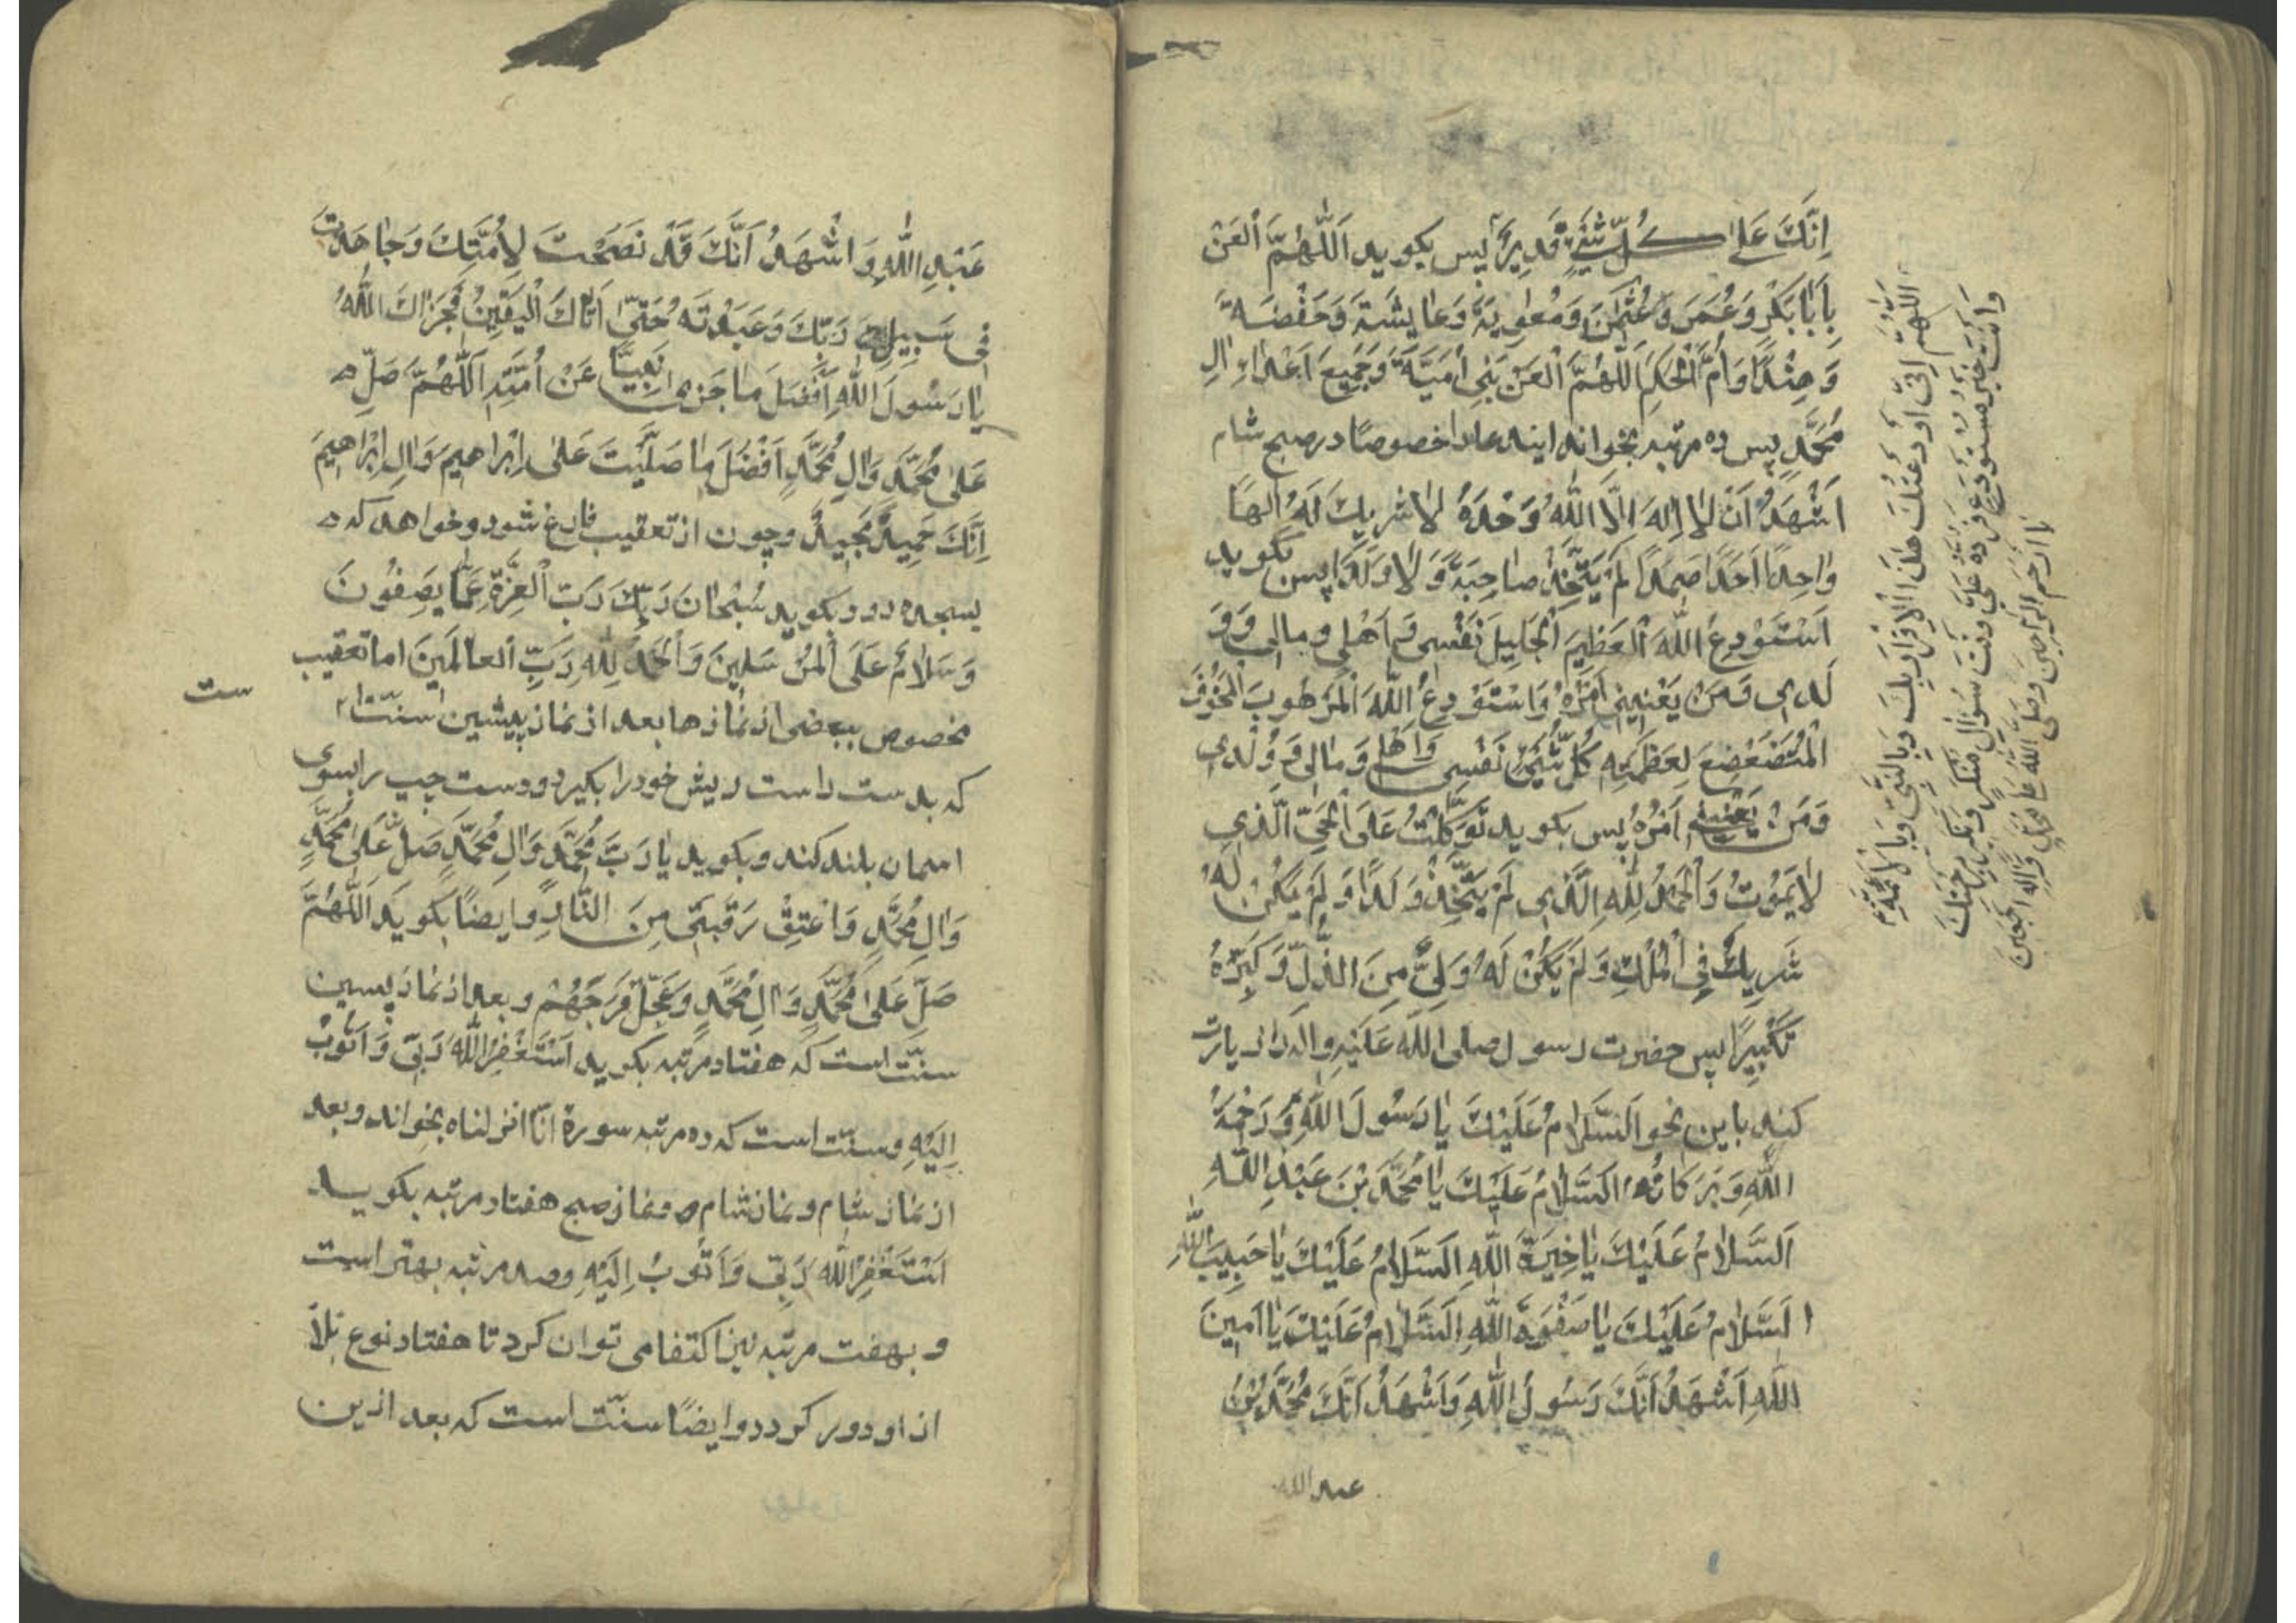 اِنَّكَ عَلٰى كُلِّ شَيْءٍ قَدِيرٌ پس بكويد اَللّٰهُمَّ الْعَنْ
بِاَبَا بَكْرٍ وَعُمَرَ وَعُثْمٰنَ وَمُعٰوِيَةَ وَعَايِشَةَ وَحَفْصَةَ
وَهِنْدًا وَاُمَّ الْحَكَمِ اَللّٰهُمَّ الْعَنْ بَنِى اُمَيَّةَ وَجَمِيعَ اَعْدٰاءِ اٰلِ
مُحَمَّدٍ پس ده مرتبه بخواند ايندعا را خصوصًا در صبح شام
اَشْهَدُ اَنْ لٰا اِلٰهَ اِلَّا اللّٰهُ وَحْدَهُ لٰا شَرِيكَ لَهُ اِلٰهًا
وٰاحِدًا اَحَدًا صَمَدًا لَمْ يَتَّخِذْ صٰاحِبَةً وَلٰا وَلَدًا پس بكويد
اَسْتَوْدِعُ اللّٰهَ الْعَظِيمَ الْجَلِيلَ نَفْسِى وَاَهْلِى وَمٰالِى وَوَ
لَدِى وَمَنْ يَعْنِينِى اَمْرُهُ وَاسْتَوْدِعُ اللّٰهَ الْمَرْهُوبَ الْمَخُوفَ
الْمُتَضَعْضِعَ لِعَظَمَتِهِ كُلُّ شَيْءٍ نَفْسِى وَاَهْلِى وَمٰالِى وَوُلْدِى
وَمَنْ يَعْنِينِى اَمْرُهُ پس بكويد تَوَكَّلْتُ عَلَى الْحَىِّ الَّذِى
لٰا يَمُوتُ وَالْحَمْدُ لِلّٰهِ الَّذِى لَمْ يَتَّخِذْ وَلَدًا وَلَمْ يَكُنْ لَهُ
شَرِيكٌ فِى الْمُلْكِ وَلَمْ يَكُنْ لَهُ وَلِىٌّ مِنَ الذُّلِّ وَكَبِّرْهُ
تَكْبِيرًا پس حضرت رسول صلى اللّٰه عَلَيْهِ وَاٰلِه را زيارت
كند باين نحو اَلسَّلٰامُ عَلَيْكَ يٰا رَسُولَ اللّٰهِ وَرَحْمَةُ
اللّٰهِ وَبَرَكٰاتُهُ اَلسَّلٰامُ عَلَيْكَ يٰا مُحَمَّدَ بْنَ عَبْدِ اللّٰهِ
اَلسَّلٰامُ عَلَيْكَ يٰا خِيَرَةَ اللّٰهِ اَلسَّلٰامُ عَلَيْكَ يٰا حَبِيبَ اللّٰهِ
اَلسَّلٰامُ عَلَيْكَ يٰا صَفْوَةَ اللّٰهِ اَلسَّلٰامُ عَلَيْكَ يٰا اَمِينَ
اللّٰهِ اَشْهَدُ اَنَّكَ رَسُولُ اللّٰهِ وَاَشْهَدُ اَنَّكَ مُحَمَّدُ بْنُ
عبد الله
اَللّٰهُمَّ اِنِّى اَوْدَعْتُكَ هٰذَا الْاِقْرَارَ بِكَ وَبِالنَّبِىِّ وَبِالْاَئِمَّةِ
وَاَنْتَ خَيْرُ مُسْتَوْدَعٍ فَرُدَّهُ عَلَىَّ وَقْتَ سُؤٰالِ مُنْكَرٍ وَنَكِيرٍ بِرَحْمَتِكَ
يٰا اَرْحَمَ الرَّاحِمِينَ وَصَلَّى اللّٰهُ عَلٰى مُحَمَّدٍ وَاٰلِهِ اَجْمَعِينَ
عَبْدِ اللّٰهِ وَاَشْهَدُ اَنَّكَ قَدْ نَصَحْتَ لِاُمَّتِكَ وَجٰاهَدْتَ
فِى سَبِيلِ رَبِّكَ وَعَبَدْتَهُ حَتّٰى اَتٰاكَ الْيَقِينُ فَجَزٰاكَ اللّٰهُ
يٰا رَسُولَ اللّٰهِ اَفْضَلَ مٰا جَزٰى نَبِيًّا عَنْ اُمَّتِهِ اَللّٰهُمَّ صَلِّ
عَلٰى مُحَمَّدٍ وَاٰلِ مُحَمَّدٍ اَفْضَلَ مٰا صَلَّيْتَ عَلٰى اِبْرٰاهِيمَ وَاٰلِ اِبْرٰاهِيمَ
اِنَّكَ حَمِيدٌ مَجِيدٌ وچون از تعقيب فارغ شود و خواهد كه
بسجده رود بكويد سُبْحٰانَ رَبِّكَ رَبِّ الْعِزَّةِ عَمّٰا يَصِفُونَ
وَسَلٰامٌ عَلَى الْمُرْسَلِينَ وَالْحَمْدُ لِلّٰهِ رَبِّ الْعٰالَمِينَ اما تعقيب
مخصوص ببعضى از نمازها بعد از نماز پيشين سنّت ا
ست
كه بدست راست ريش خود را بكيرد و دست چپ را بسوى
اسمان بلند كند و بكويد يٰا رَبَّ مُحَمَّدٍ وَاٰلِ مُحَمَّدٍ صَلِّ عَلٰى مُحَمَّدٍ
وَاٰلِ مُحَمَّدٍ وَاَعْتِقْ رَقَبَتِى مِنَ النّٰارِ وايضًا بكويد اَللّٰهُمَّ
صَلِّ عَلٰى مُحَمَّدٍ وَاٰلِ مُحَمَّدٍ وَعَجِّلْ فَرَجَهُمْ و بعد از نماز پسين
سنّت است كه هفتاد مرتبه بكويد اَسْتَغْفِرُ اللّٰهَ رَبِّى وَاَتُوبُ
اِلَيْهِ وسنّت است كه ده مرتبه سورة انّا انزلناه بخواند و بعد
از نماز شام و نماز شام و نماز صبح هفتاد مرتبه بكويد
اَسْتَغْفِرُ اللّٰهَ رَبِّى وَاَتُوبُ اِلَيْهِ وصد مرتبه بهتر است
و بهفت مرتبه نيز اكتفا مى توان كرد تا هفتاد نوع بلا
از او دور كردد وايضًا سنّت است كه بعد ازين